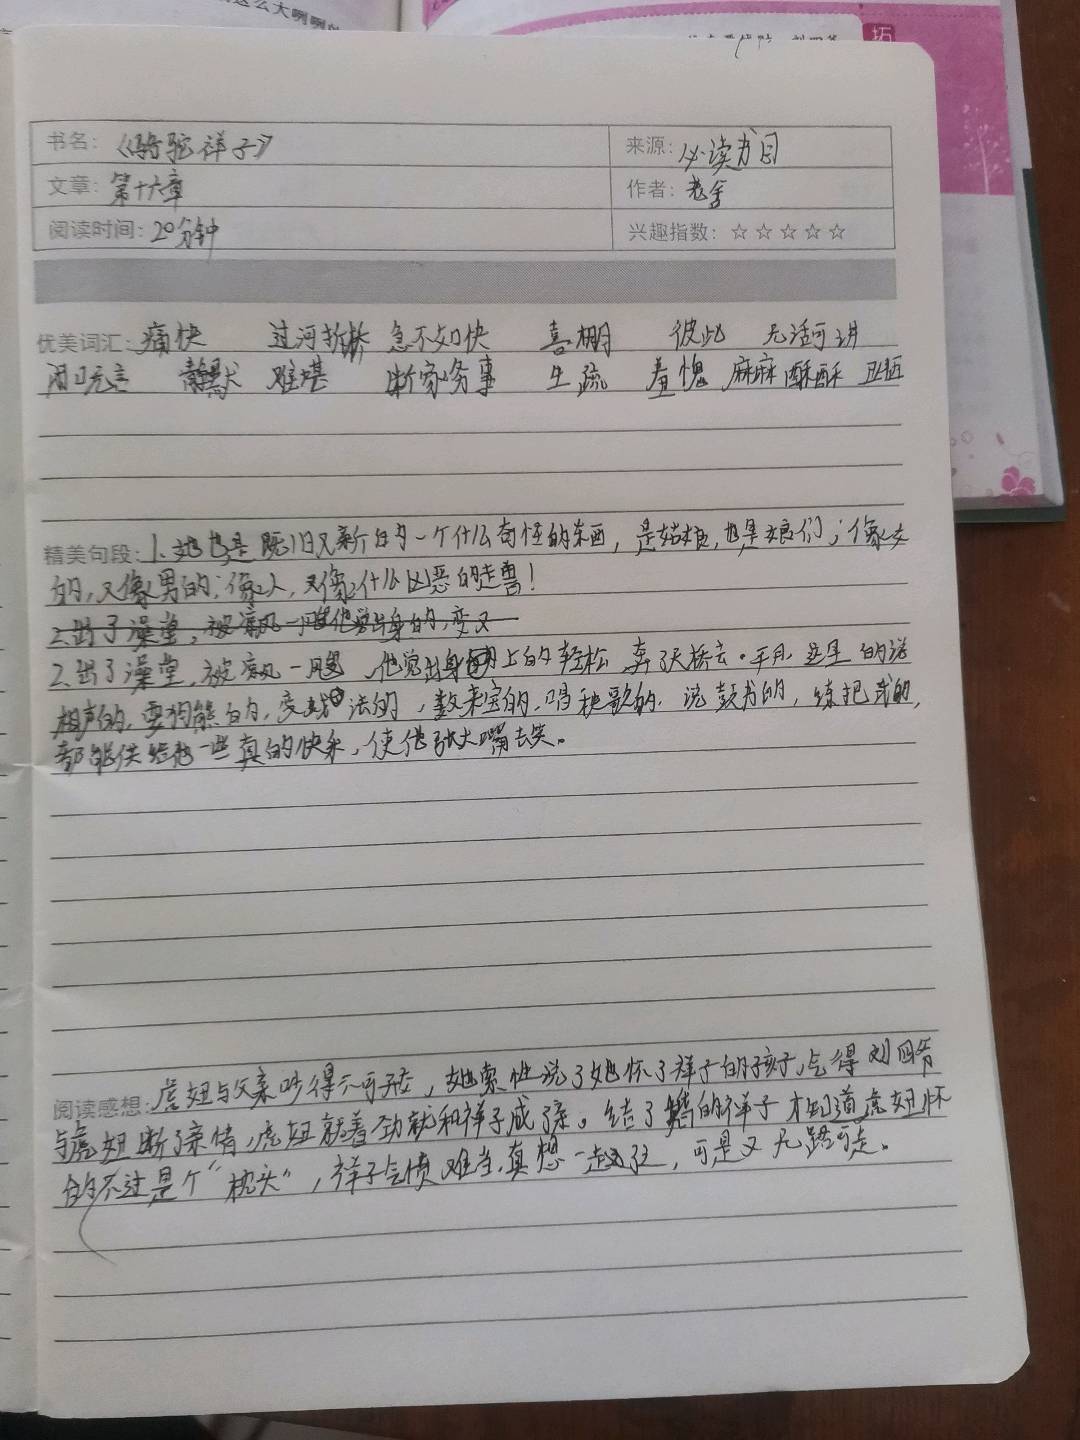 么大咧咧
拓
书名：《骆驼祥子》 来源：必读书目
文章：第十六章 作者：老舍
阅读时间：20分钟 兴趣指数：☆☆☆☆☆
优美词汇：痛快 过河拆桥 急不如快 喜棚 彼此 无话可讲
哑口无言 静默 难堪 断家务事 生疏 羞愧 麻麻酥酥
精美句段：1、她也是既旧又新的一个什么奇怪的东西，是姑娘，也是娘们；像女
的，又像男的；像人，又像什么凶恶的走兽！
2.出了澡堂，被凉风一飕他觉出身的，变又
2、出了澡堂，被凉风一飕，他觉出身上的轻松 奔了天桥去。平日，这里的说
相声的，耍狗熊的，变戏法的，数来宝的，唱秧歌的，说鼓书的，练把式的，
都能供给他一些真的快乐，使他张大嘴去笑。
阅读感想：虎妞与父亲吵得不可开交，她索性说了她怀了祥子的孩子，气得刘四爷
与虎妞断了亲情，虎妞就着劲就和祥子成了亲。结了婚的祥子才知道虎妞怀
的不过是个“枕头”，祥子气愤难当，真想一走了，可是又无路可走。